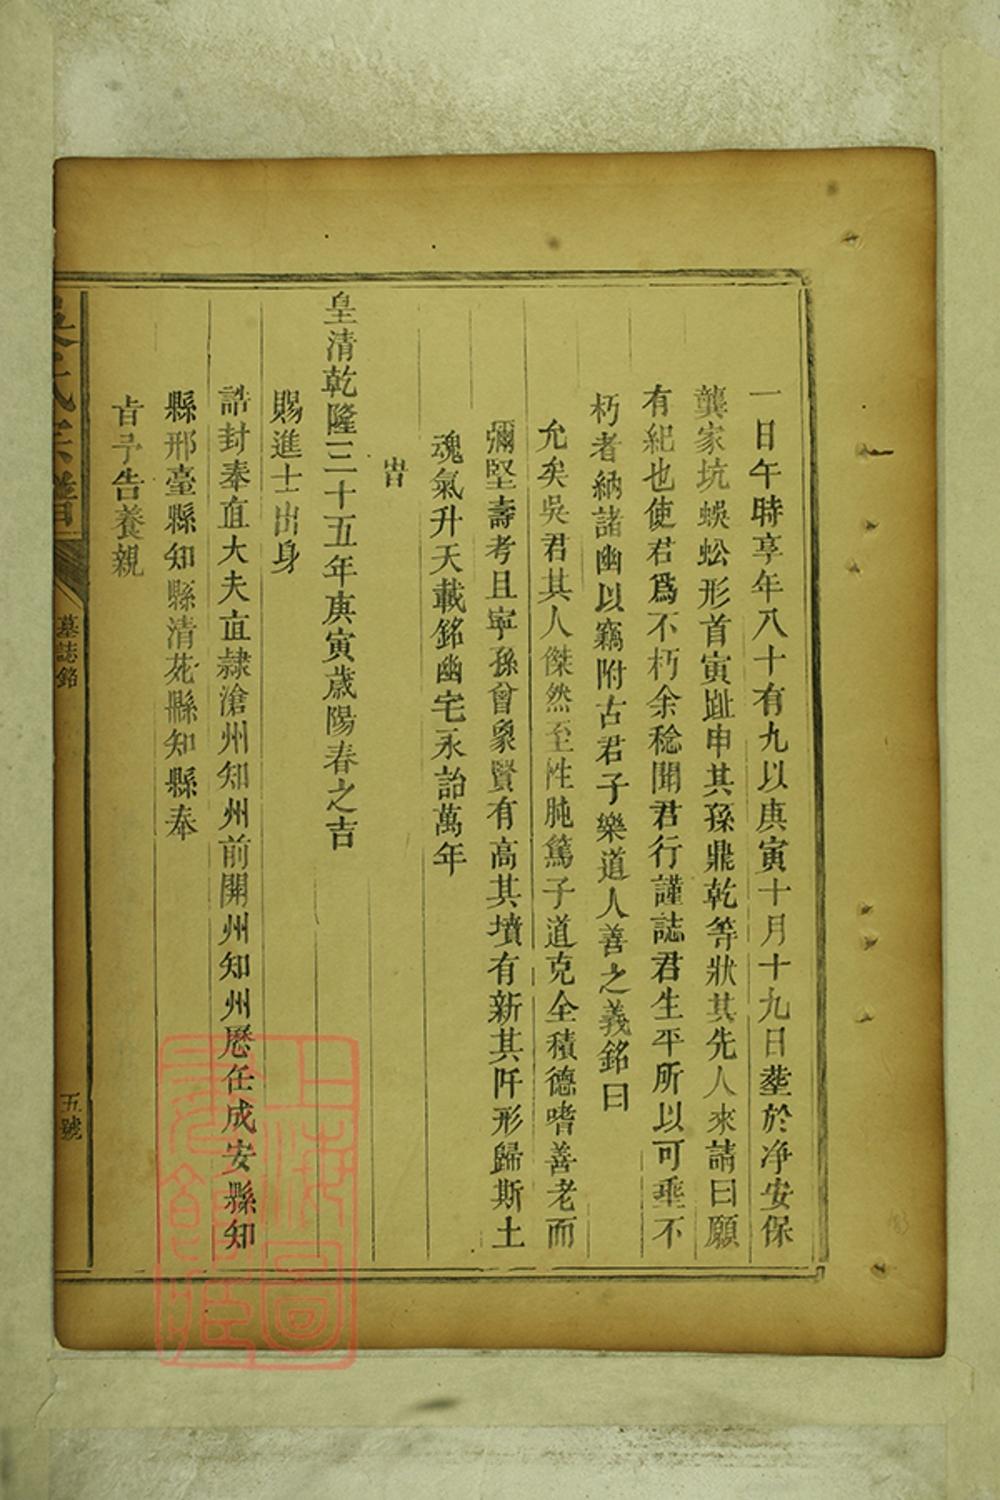 一日午時享年八十有九以庚寅十月十九日塟於净安保
龔家坑蜈蚣形首寅趾申其孫鼎乾等狀其先人來請曰願
有紀也使君爲不朽余稔聞君行謹誌君生平所以可垂不
朽者納諸幽以竊附古君子樂道人善之義銘曰
允矣吳君其人傑然至性肫篤子道克全積德嗜善老而
彌堅壽考且寧孫曾象賢有高其墳有新其阡形歸斯土
魂氣升天載銘幽宅永詒萬年
旹
皇清乾隆三十五年庚寅歲陽春之吉
賜進士出身
誥封奉直大夫直隸滄州知州前開州知州歷任成安縣知
縣邢臺縣知縣清苑縣知縣奉
旨予告養親
吳氏宗譜
墓誌銘
五號
上海圖書館藏